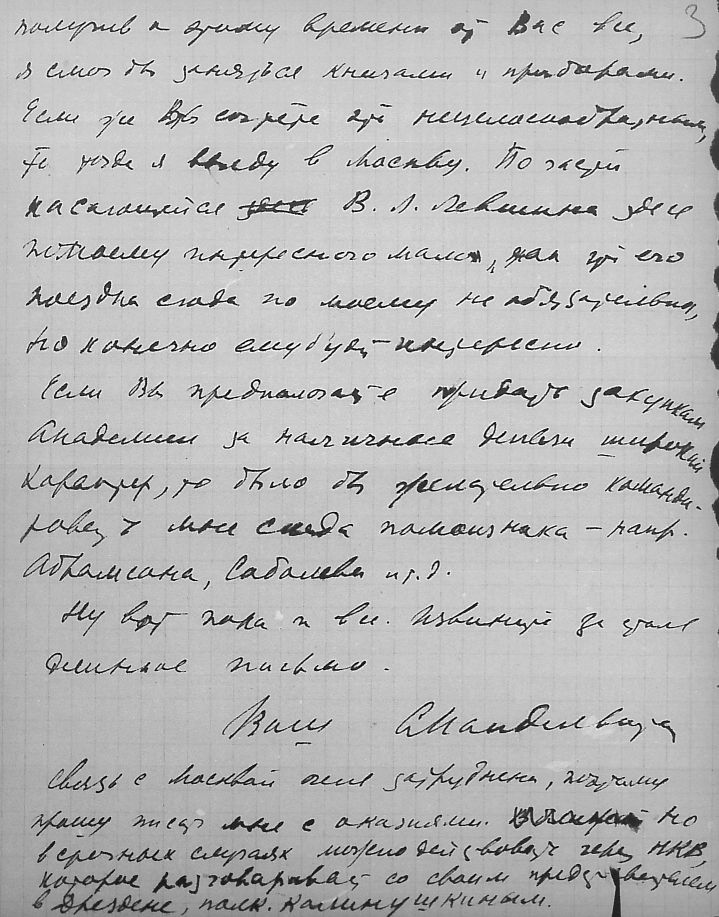 3
получив к этому времени от Вас все,
я смог бы заняться книгами и приборами.
Если же Вы сочтете это нецелесообразным,
то тогда я выеду в Москву. По части
касающейся В. Л. Левшина здесь
по моему интересного мало, так что его
поездка сюда по моему не обязательна,
но конечно ему будет интересно.
Если Вы предполагаете придать закупкам
Академии за наличные деньги широкий
характер, то было бы желательно команди-
ровать мне сюда помощника – напр.
Абрамсона, Соболева и т.д.
Ну вот пока и все. Извините за столь
длинное письмо.
Ваш СМандельштам
Связь с Москвой очень затруднена, поэтому
прошу писать мне с оказиями. Но
в срочных случаях можно действовать через НКВ,
которое разговаривает со своим представителем
в Дрездене, полк. Калинушкиным.